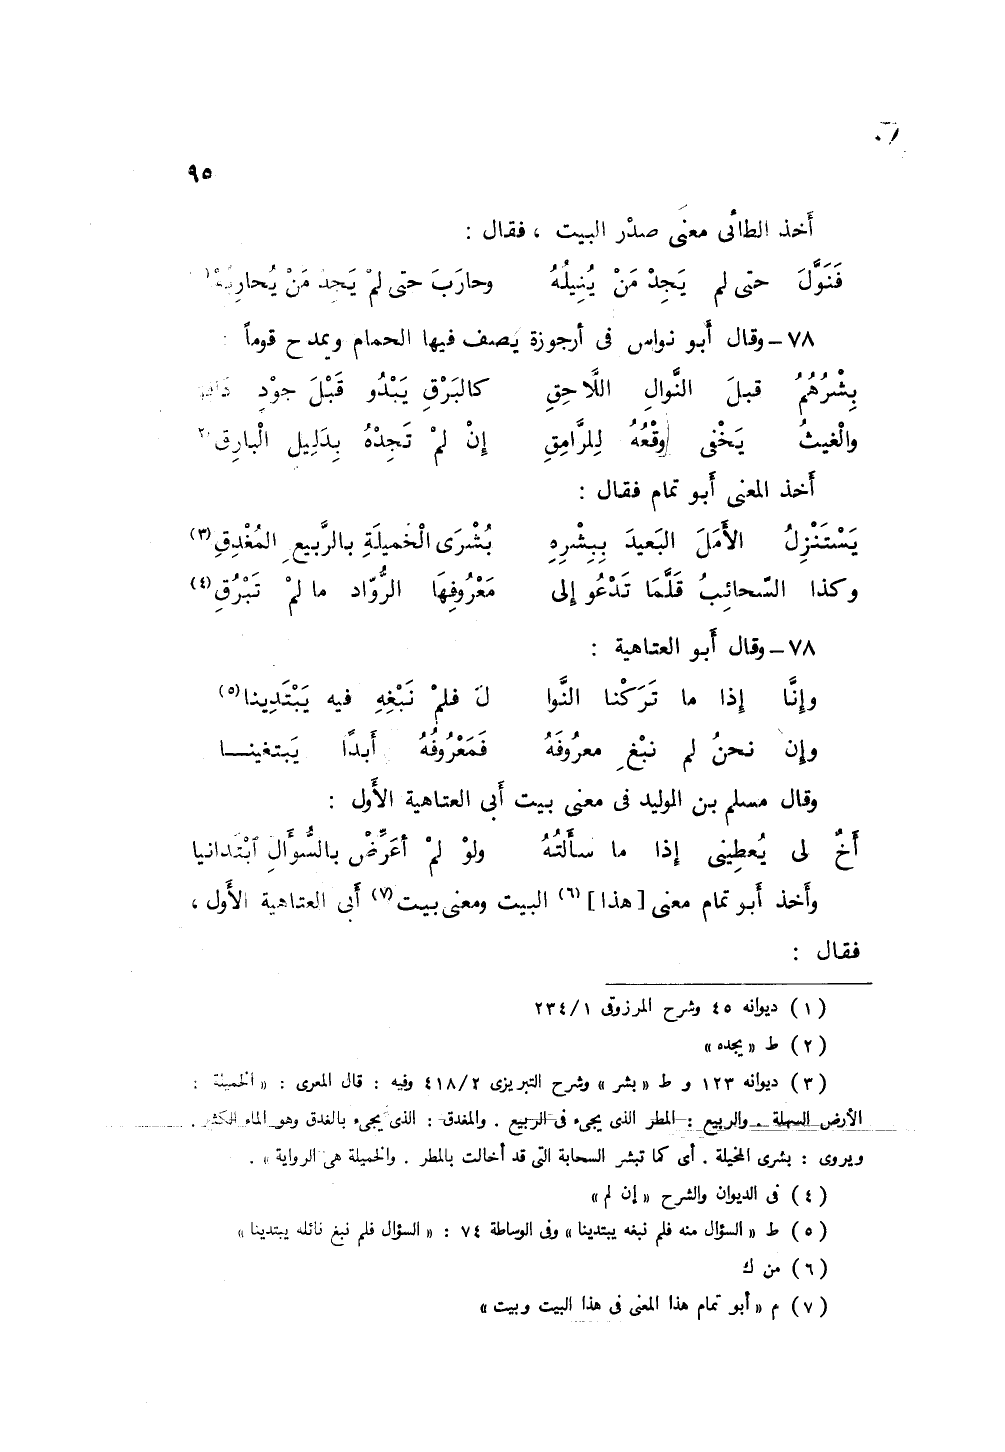 ٩٥
أَخذ الطائى معنَى صدْر البيت ، فقال :
فَنَوَّلَ حتى لم يَجِدْ مَنْ يُنِيلُهُ وحارَبَ حتى لمْ يَجِدْ مَنْ يُحارِبُهْ(١
٧٨ – وقال أَبو نواس فى أرجوزة يَصف فيها الحمام ويمدح قوماً :
بِشْرُهُمُ قبلَ النَّوالِ اللَّاحِقِ كالبَرْقِ يَبْدُو قَبْلَ جوْدٍ دَافِقِ
والْغيثُ يَخْفى وقْعُهُ لِلرَّامِقِ إنْ لمْ تَجِدْهُ بِدَلِيلِ الْبارِقِ(٢
أَخذ المعنى أَبو تمام فقال :
يَسْتَنْزِلُ الأَمَلَ البَعيدَ بِبِشْرِهِ بُشْرَى الْخَمِيلَةِ بالرَّبيعِ المُغْدِقِ(٣)
وكذا السَّحائِبُ قَلَّمَا تَدْعُو إلى مَعْرُوفِهَا الرُّوّاد مالمْ تَبْرُقِ(٤)
٧٨ – وقال أَبو العتاهية :
وإِنَّا إِذا ما تَرَكْنا النَّوا لَ فلمْ نَبْغِهِ فيه يَبْتَدِينا(٥)
وإن نحنُ لم نبْغِ معروُفَهُ فَمَعْرُوفُهُ أَبدًا يَبتغينـــا
وقال مسلم بن الوليد فى معنى بيت أَبى العتاهية الأَول :
أَخٌ لى يُعطِينى إذا ما سأَلتُهُ ولوْ لمْ أعَرِّضْ بالسُّوَالِ ابْتَدانيا
وأَخذ أَبو تمام معنى [هذا](٦) البيت ومعنى بيت(٧) أَبى العتاهية الأَول ،
فقال :
(١) ديوانه ٤٥ وشرح المرزوقى ٢٣٤/١
(٢) ط «يجده»
(٣) ديوانه ١٢٣ و ط «بشر» وشرح التبريزى ٤١٨/٢ وفيه : قال المعرى : «الخميلة :
الأرض السهلة . والربيع : المطر الذى يجىء فى الربيع . والمغدق : الذى يجىء بالغدق وهو الماء الكثير .
ويروى : بشرى المخيلة . أى كما تبشر السحابة التى قد أخالت بالمطر . والخميلة هى الرواية » .
(٤) فى الديوان والشرح «إن لم»
(٥) ط «السؤال منه فلم نبغه يبتدينا» وفى الوساطة ٧٤ : «السؤال فلم نبغ نائله يبتدينا»
(٦) من ك
(٧) م «أبو تمام هذا المعنى فى هذا البيت وبيت»